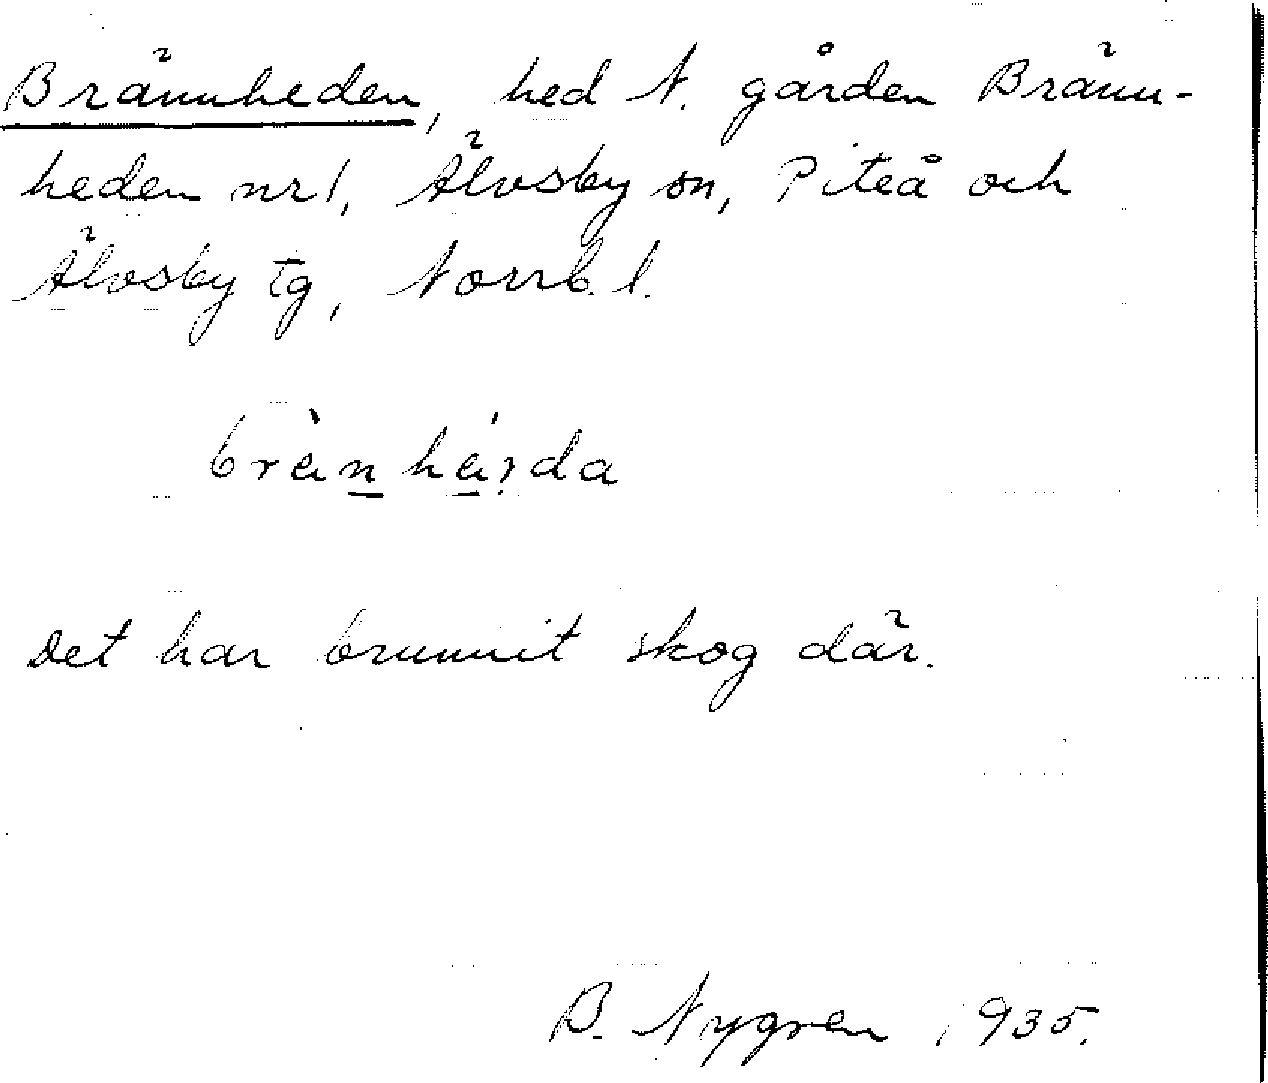 Brännheden, hed N. gården Bränn-
heden nr 1, Älvsby sn, Piteå och
Älvsby tg, Norrb. l.
Det har brunnit skog där.
B. Nygren 1935.